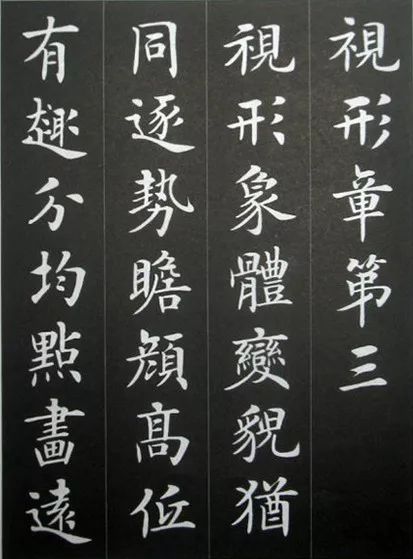 視形章第三
視形象體變貌猶
同逐勢瞻顔高低
有趣分均點畫遠